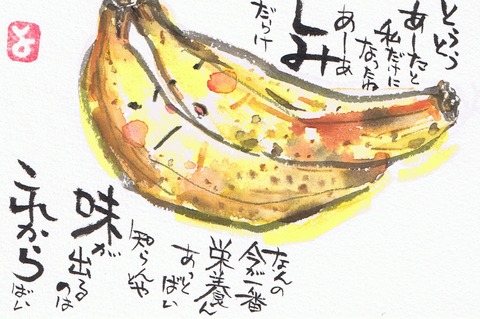 とうとう
あーたと
私だけに
なったね
あーあ
しみ
だらけ
なんの
今が一番
栄養ん
あっとばい
知らんや
味が
出るのは
これからばい